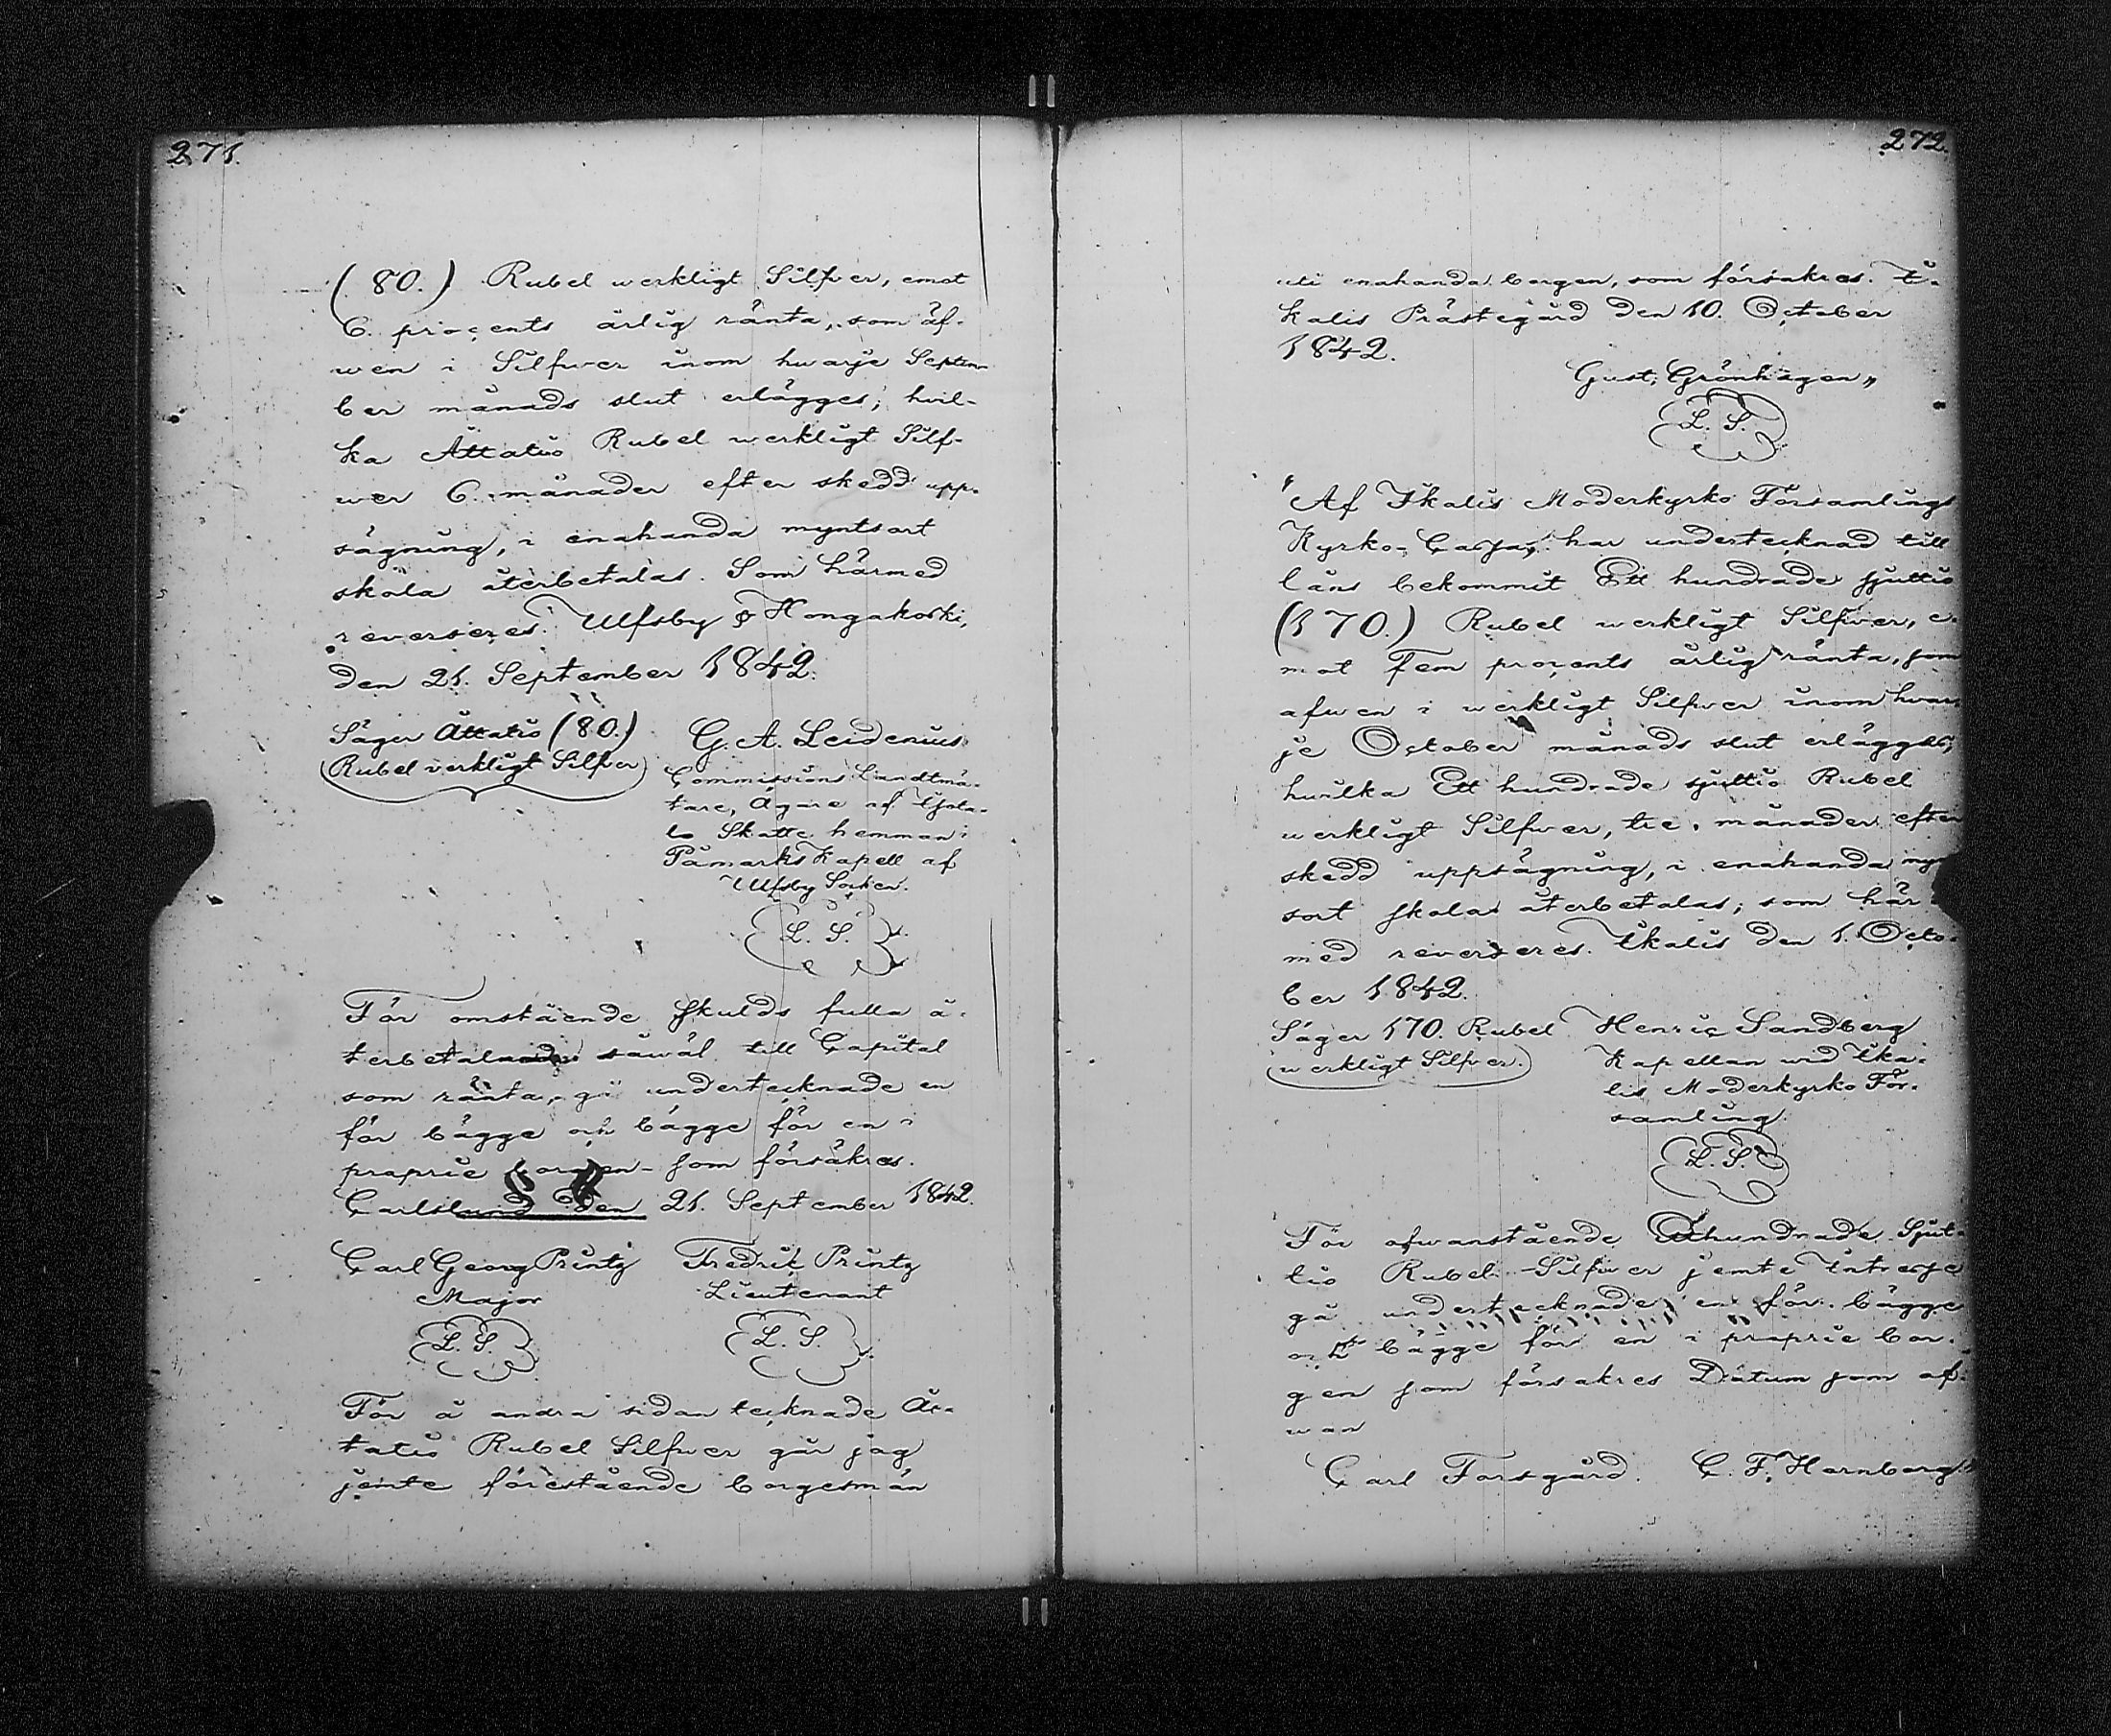 271.
(80.) Rubel werkligt Silfwer, emot
6. procents årlig ränta, som äf-
wen i Silfwer inom hwarje Septem-
ber månads slut erlägges; hvil-
ka Åttatio Rubel werkligt Silf-
wer 6. månader efter skedd upp-
sägning, i enahanda myntsort
skola återbetalas. Som härmed
reverseres. Ulfsby & Hongakoski,
den 21. September 1842.
Säger Åttatio (80.)
Rubel verkligt Silfver
G. A. Leidenius
Commissions Landtmä-
tare, Ägare af
Skatte hemman i
Påmarks Kapell af
Ulfsby Socken.
L. S.
För omstående skulds fulla å-
terbetalande såwäl till Capital
som ränta, gå undertecknade en
för bägge och bägge för en i
proprie borgen som försäkras.
Carlslund den 21. September 1842.
Carl Georg Printz
Major
L. S.
Fredrik Printz
Lieutenant
L. S.
För å andra sidan tecknade Åt-
tatio Rubel Silfwer går jag
jemte förestående borgesmän
272.
uti enahanda borgen, som försäkras. I-
kalis Prästegård den 10. October
1842.
Gust. Grönhagen„
L. S.
"Af Ikalis Moderkyrko Församlings
Kyrko-Cassa, har undertecknad till
låns bekommit Ett hundrade sjuttio
(170.) Rubel werkligt Silfwer, e-
mot Fem procents årlig ränta, som
afwen i werkligt Silfwer inom hvar-
je October månads slut erlägges;
hvilka Ett hundrade sjuttio Rubel
werkligt Silfwer, tre månader efter
skedd uppsägning, i enahanda mynt
sort skola återbetalas; som här
med reverseres. Ikalis den 1. Octo-
ber 1842.
Säger 170. Rubel
werkligt Silfwer.
Henric Sandberg
Kapellan wid Ika-
lis Moderkyrko För-
samling.
L. S.
För ofwanstående Etthundrade Sjut-
tio Rubel Silfwer jemte Intresse
gå undertecknade, en för bägge
och bägge för en i proprie bor-
gen som försakres Datum som of-
wan
Carl Forsgård. C. F. Hornborg.